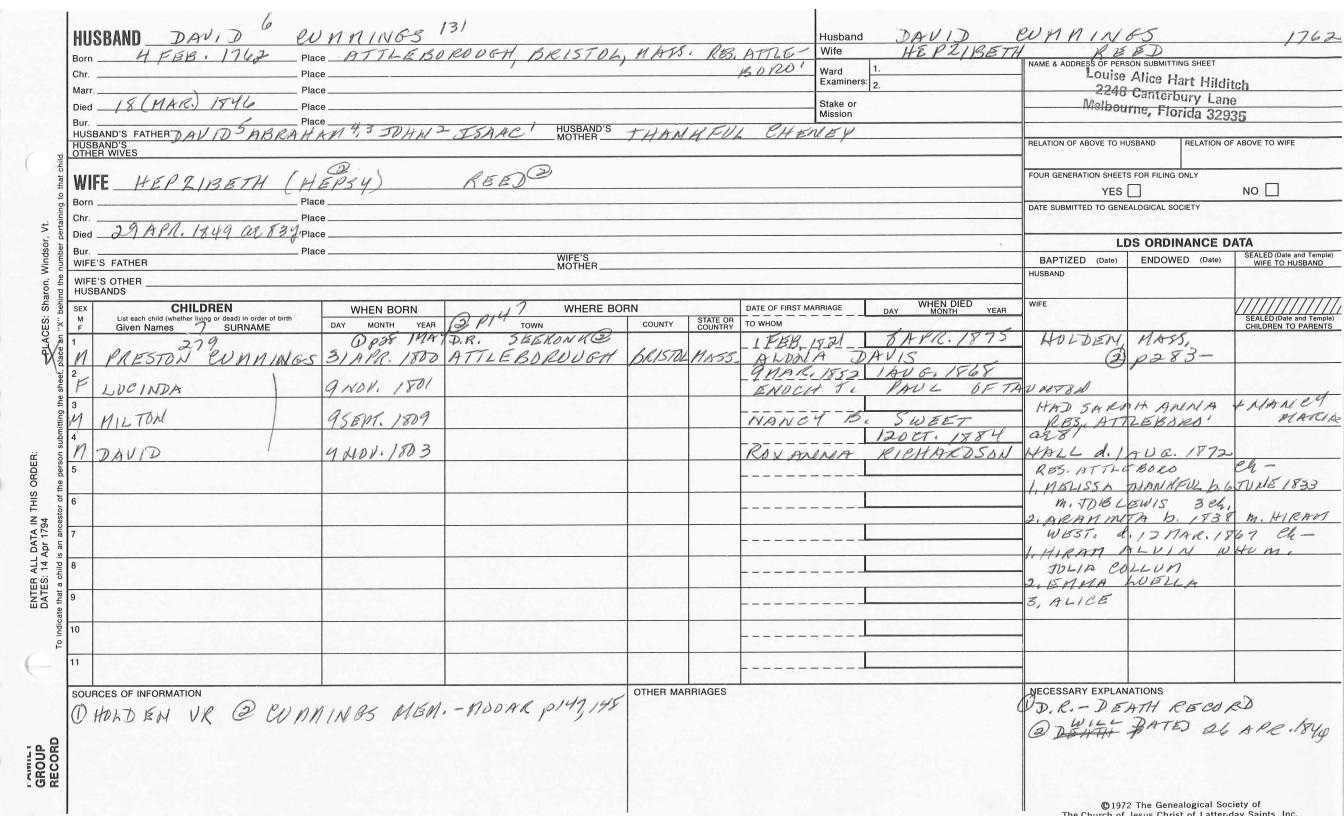 HUSBAND DAVID 6 CUMMINGS 131
Born 4 FEB. 1762 Place ATTLEBOROUGH, BRISTOL, MASS. RES. ATTLE-
BORO'
Chr. Place
Marr. Place
Died 18 (MAR.) 1846 Place
Bur. Place
HUSBAND'S FATHER DAVID 5 ABRAHAM 4,3 JOHN 2 ISAAC 1 HUSBAND'S MOTHER THANKFUL CHENEY
HUSBAND'S OTHER WIVES
Husband DAVID CUMMINGS 1762
Wife HEPZIBETH REED
Ward Examiners: 1.
2.
Stake or Mission
NAME & ADDRESS OF PERSON SUBMITTING SHEET
Louise Alice Hart Hilditch
2248 Canterbury Lane
Melbourne, Florida 32935
RELATION OF ABOVE TO HUSBAND RELATION OF ABOVE TO WIFE
FOUR GENERATION SHEETS FOR FILING ONLY
YES NO
DATE SUBMITTED TO GENEALOGICAL SOCIETY
WIFE HEPZIBETH (HEPSY) REED ②
Born Place
Chr. Place
Died 29 APR. 1849 ae 83y Place
Bur. Place
WIFE'S FATHER WIFE'S MOTHER
WIFE'S OTHER HUSBANDS
LDS ORDINANCE DATA
BAPTIZED (Date) ENDOWED (Date) SEALED (Date and Temple) WIFE TO HUSBAND
HUSBAND
WIFE
SEALED (Date and Temple) CHILDREN TO PARENTS
SEX M F
CHILDREN
List each child (whether living or dead) in order of birth
Given Names 7 SURNAME
WHEN BORN
DAY MONTH YEAR
② p147 WHERE BORN
TOWN COUNTY STATE OR COUNTRY
DATE OF FIRST MARRIAGE
TO WHOM
WHEN DIED
DAY MONTH YEAR
1 279 ① p28 1MAY D.R. SEEKONK ② 1 FEB. 1821 8 APR. 1875 HOLDEN, MASS,
M PRESTON CUMMINGS 31 APR. 1800 ATTLEBOROUGH BRISTOL MASS. ALONA DAVIS ② p283-
2 9 MAR. 1852 1 AUG. 1868
F LUCINDA 9 NOV. 1801 ENOCH T. PAUL OF TAUNTON
3 HAD SARAH ANNA + NANCY
M MILTON 9 SEPT. 1809 NANCY B. SWEET RES. ATTLEBORO' MARIA
4 12 OCT. 1884 ae 81
M DAVID 4 NOV. 1803 ROXANNA RICHARDSON HALL d. 1 AUG. 1872
5 RES. ATTLEBORO ch-
1. MELISSA THANKFUL b. 6 JUNE 1833
6 m. JOB LEWIS 3 ch.
2. ARAMINTA b. 1838 m. HIRAM
7 WEST. d. 12 MAR. 1867 ch-
1. HIRAM ALVIN WHO m.
8 JULIA COLLUM
2. EMMA LUELLA
9 3, ALICE
10
11
SOURCES OF INFORMATION
① HOLDEN VR ② CUMMINGS MEM. - MOOAR p147, 148
OTHER MARRIAGES
NECESSARY EXPLANATIONS
① D.R. - DEATH RECORD
② WILL DATED 26 APR. 1849
©1972 The Genealogical Society of
The Church of Jesus Christ of Latter-day Saints, Inc.
PLACES: Sharon, Windsor, Vt.
ENTER ALL DATA IN THIS ORDER:
DATES: 14 Apr 1794
To indicate that a child is an ancestor of the person submitting the sheet, place an "X" behind the number pertaining to that child.
FAMILY GROUP RECORD